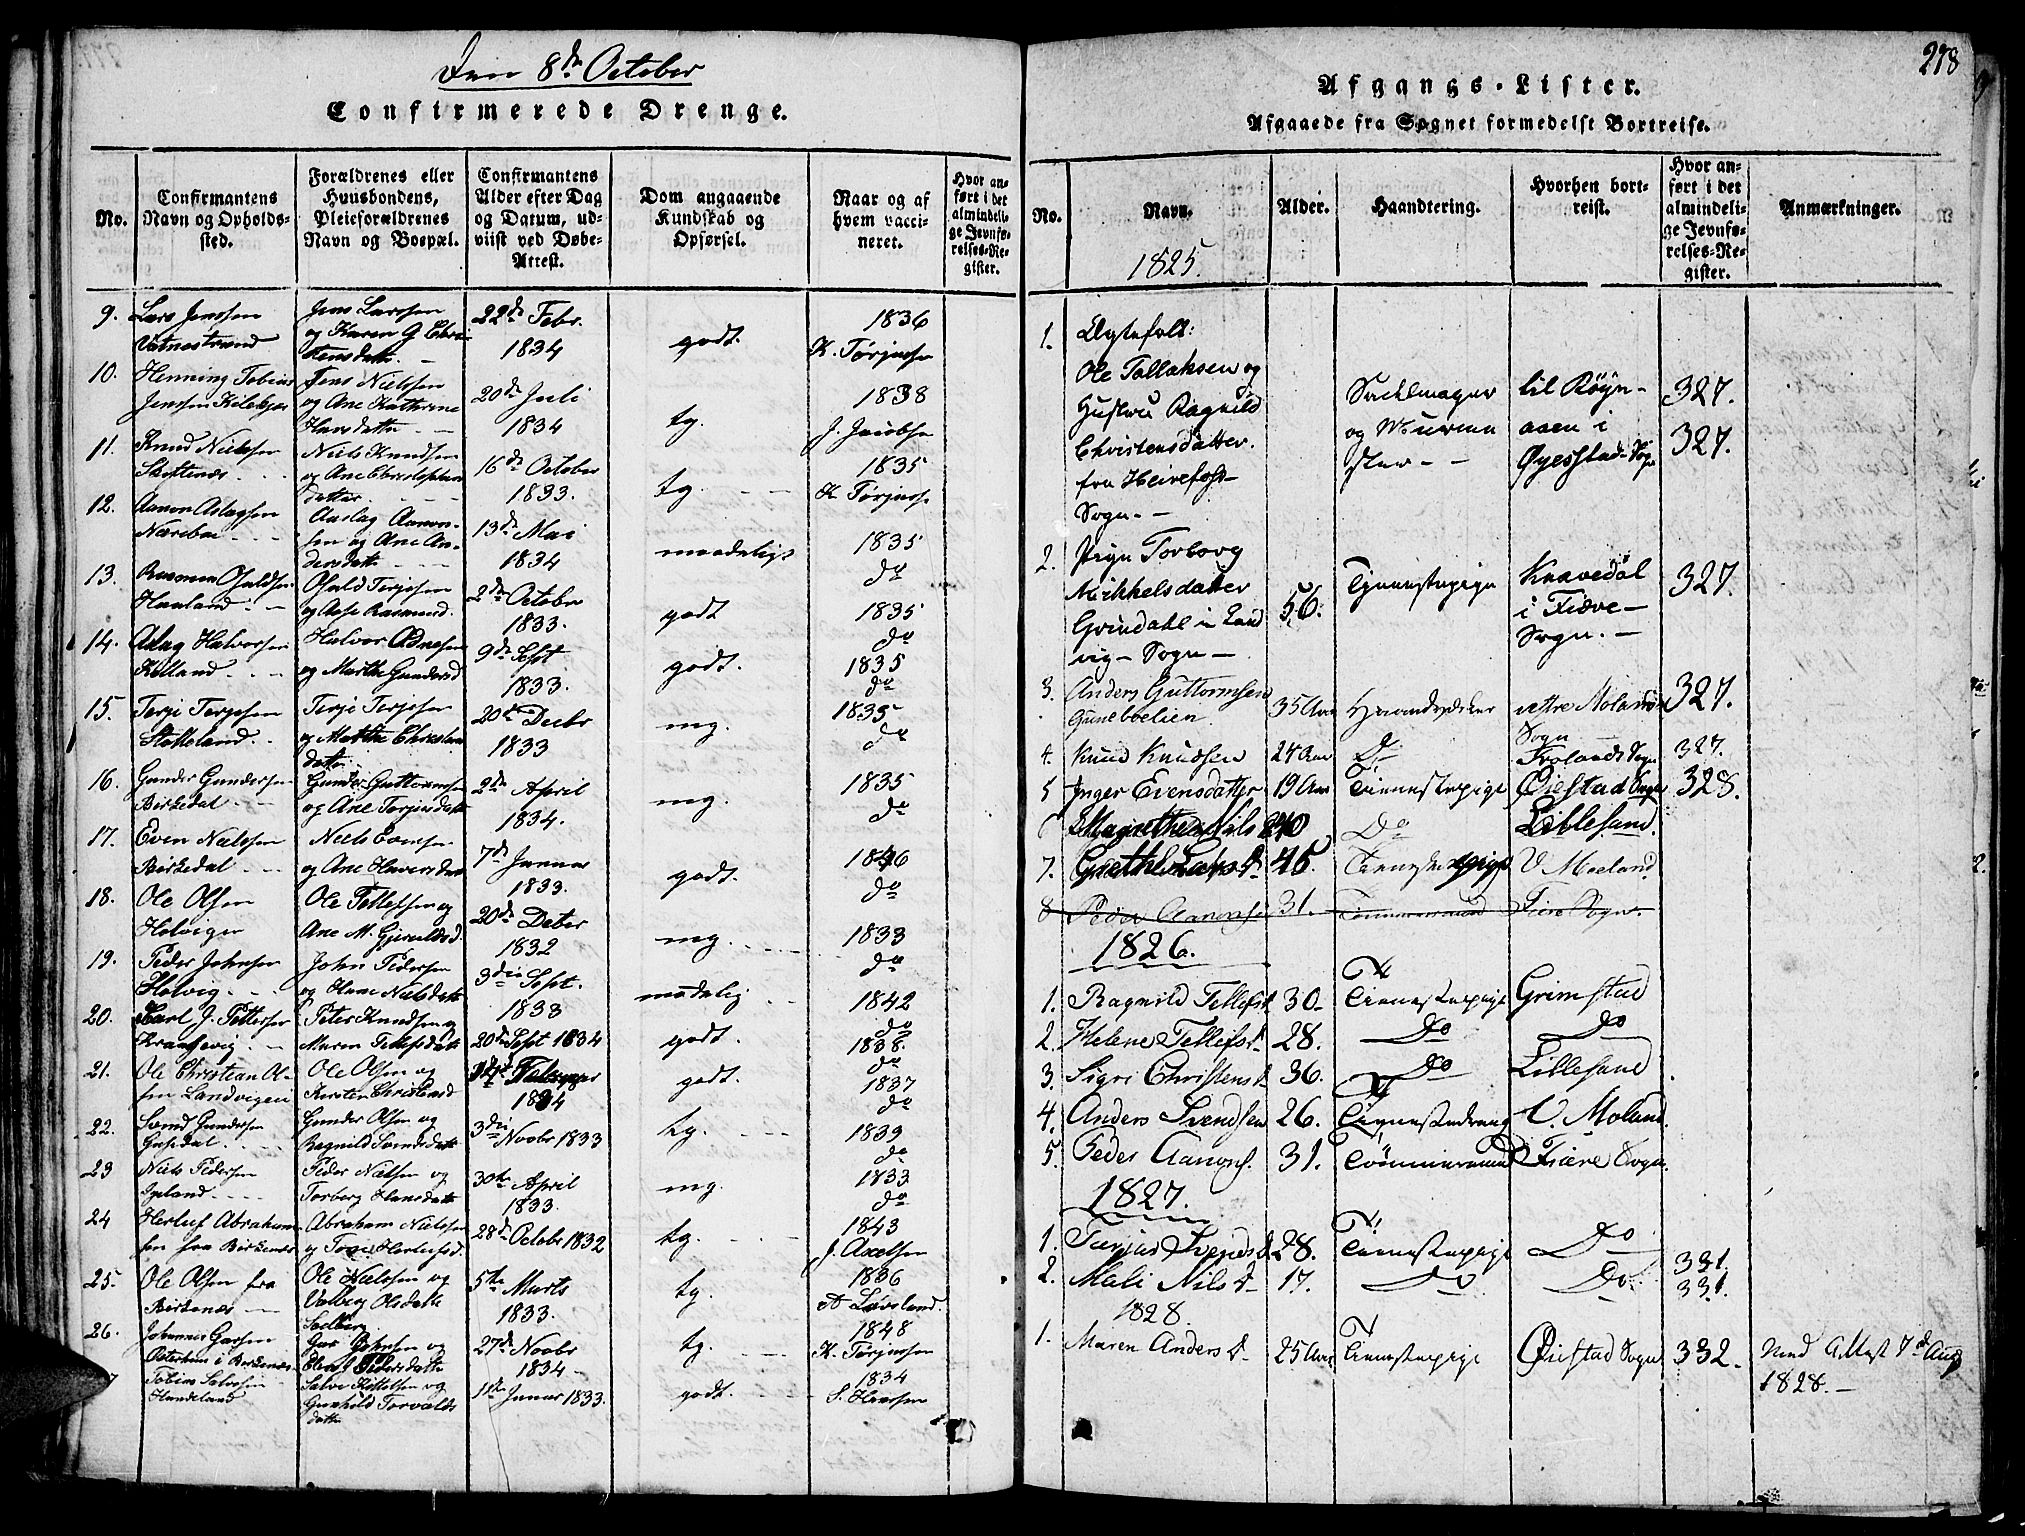 Den 8de October
Confirmerede Drenge.
No.
Confirmantens
Navn og Opholds-
sted.
Forældrenes eller
Huusbondens,
Pleieforældrenes
Navn og Boepæl.
Confirmantens
Alder efter Dag
og Datum, ud-
viist ved Døbe-
Attest.
Dom angaaende
Kundskab og
Opførsel.
Naar og af
hvem vacci-
neret.
Hvor an-
ført i det
almindeli-
ge Jevnfø-
relses-Re-
gister.
9. Lars Jenssen
Vatnestrand
Jens Larssen
og Karen G. Chri
stensdatt. —
22de Febr.
1834
godt.
1836
K. Tørjussen
10. Henning Tobias
Jenssen
Jens Nielssen
og Ane Kathrine
Hansdatte — —
20de Juli
1834
tg.
1838
J. Jacobsen
11. Knud Nielssen
Niels Knudsen
og Ane
datter
16de October
1833.
tg. - - -
1835
K. Tørjuss
12. Aanon Aslagsen
Aaslag Aanon-
sen og Ane An-
dersdatt
13de Mai
1834
maadeligt
1835
do
13. Rasmus Osuldsen
Haaland. —
Osuld Terjesen
og Aase Rasmusd.
2de Octobr
1833.
godt
1835
do
14. Aslag Halvorsen
Kolland. . . —
Halvor
og Marthe Gundersd
9de Sept
1833.
godt.
1835
do
15. Terje Terjesen
Stokkeland. .
Terje Terjesen
og Marthe Christens
datte
20de Decbr
1833
mg.
1835
do
16. Gunder Gundersen
Birkedal
Gunder Guttormsen
og Ane Terjesdatt
2de April
1834.
mg.
1835
do
17. Even Nielssen
Birkedal
Niels Evensen
og Ane
7de Januar
1833.
godt.
1846
do
18. Ole Olsen
Holvigen
Ole Tellefsen og
Ane M. Gjeruldsd.
20de Decbr
1832
mg.
1833
do
19. Peder Johnsen
Holvig
John Pedersen
og Anne Nielsdatt
3die Sept.
1833
maadelig
1842
do
20. Karl J. Pettersen
Peter Knudsen og
Maren Tellefsdatt
20de Sept 1834
godt.
1838
do
21. Ole Christian Ol-
sen Landvigen
Ole Olsen og
Kirsten Christensd
1834
godt.
1837
do
22. Svend Gundersen
Gunder Olsen og
Ragnild Svendsdatt
3die Novbr 1833
tg.
1839
do
23 Niels Pedersen
Igland
Peder Nielsen og
Torborg Hansdatt
30te April
1833.
mg.
1833
do
24 Herluf Abraham
sen fra Birkenæs
Abraham Nielssen
og Tone Herlufsd.
28de Octobr 1832
tg.
1843
J. Axelsen
25. Ole Olsen fra
Birkenæs —
Ole Nielssen og
Valborg Olsdatte
5te Marts
1833.
tg.
1836
A Løvsland.
26. Johannes
i Birkenæs
Johnsen og
Pedersdatt
27de Novbr
1834 —
tg.
1848
K. Tørjussen
7 Tobias Salvesen
Salve Kittelsen og
Gunhild Torvalds
datte
11te Januar 1833.
godt.
1834
278
Afgangs-Lister.
Afgaaede fra Sognet formedelst Bortreise.
No.
Navn.
Alder.
Haandtering.
Hvorhen bort-
reist.
Hvor an-
ført i det
almindeli-
ge Jevnfø-
relses-Re-
gister.
Anmærkninger.
1825.
1. Ægtefolk:
Ole Tallaksen og
Hustru Ragnild
Christensdatter
fra Heirefoss-
Sogn. —
Sadelmager
og Murme
ster — —
til Røyn-
aasen i
Øyestad-Sogn
327.
327.
2. Pige Torborg
Mikkelsdatter
Grindahl i Land
vig- Sogn —
56.
Tjenestepige
i Fiære-
Sogn. —
327.
3. Anders Guttormsen
35 Aar
Haandværker
vestre Moland
Sogn
327.
4. Knud Knudsen 24 Aar Do Frolands Sogn 327.
5 Inger Evensdatter 19 Aar Tienestepige Øiestad Sogn 328.
6 Magrethe Nils Do Lillesand.
7. 45 Tienestepige V Moeland
8 Peder Aanonsen 31. Tømmermand Fiære Sogn.
1826.
1. Ragnild Tellefsd. 30. Tienestepige Grimstad
2. Helene Tellefsd. 28. Do Do
3. Sigri Christensd 36. Do Lillesand
4. Anders Svendsen 26. Tienestedreng V. Moland.
5. Peder Aanons. 31. Tømmermand Fiære Sogn.
1827.
1. Svends d 28. Tienestepige Do 331.
2. Mali Nils d 17. Do Do 331.
1828.
1. Maren Anders d. 25 Aar Tienestepige Øiestad Sogn 332. Med Attest 7de Aug
1828. —